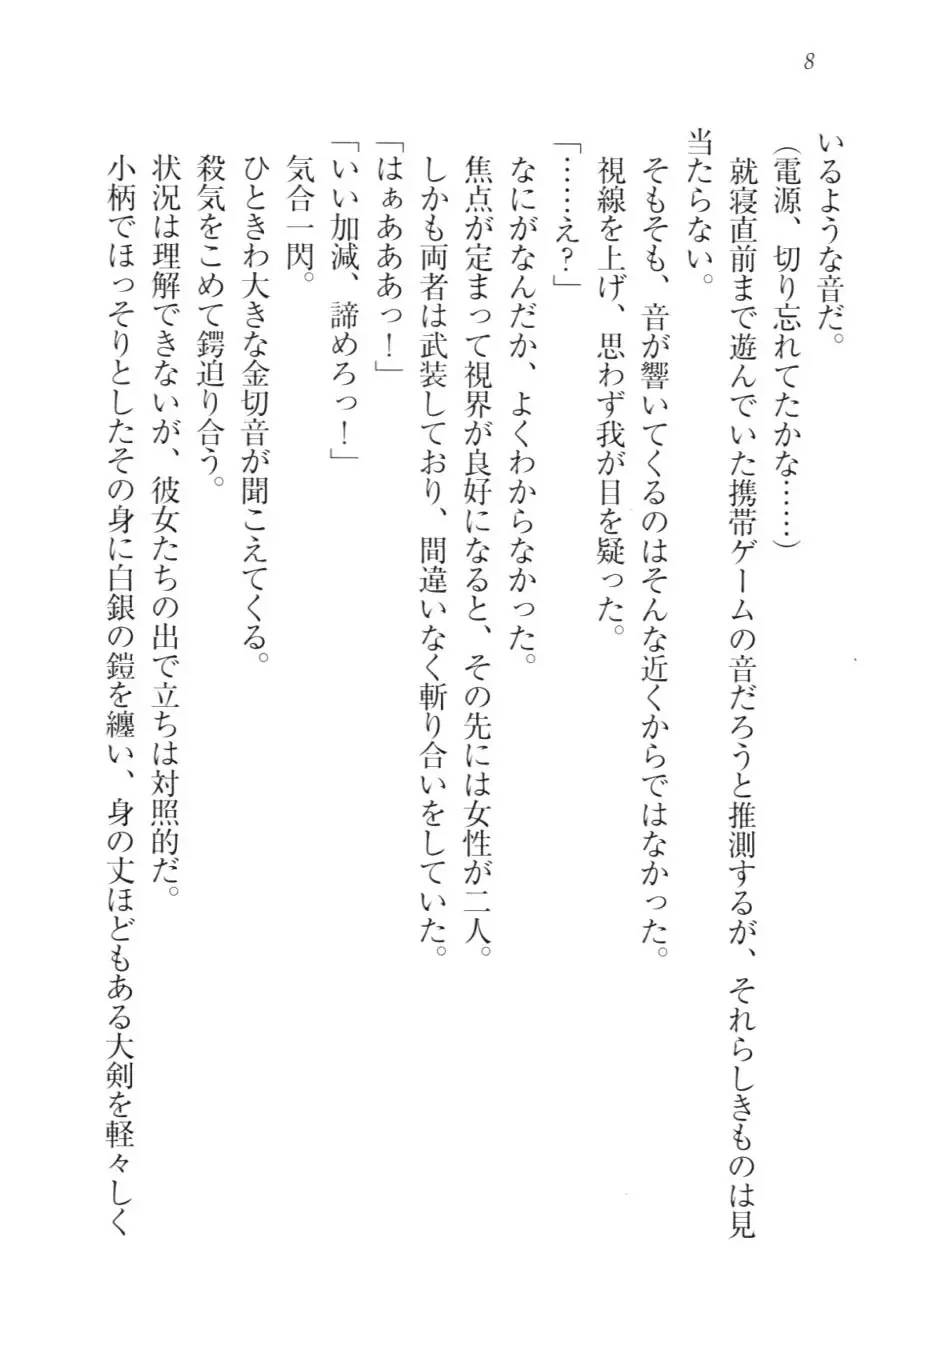 8
いるような音だ。
（電源、切り忘れてたかな……）
就寝直前まで遊んでいた携帯ゲームの音だろうと推測するが、それらしきものは見
当たらない。
そもそも、音が響いてくるのはそんな近くからではなかった。
視線を上げ、思わず我が目を疑った。
「……え？」
なにがなんだか、よくわからなかった。
焦点が定まって視界が良好になると、その先には女性が二人。
しかも両者は武装しており、間違いなく斬り合いをしていた。
「はぁあああっ！」
「いい加減、諦めろっ！」
気合一閃。
ひときわ大きな金切音が聞こえてくる。
殺気をこめて鍔迫り合う。
状況は理解できないが、彼女たちの出で立ちは対照的だ。
小柄でほっそりとしたその身に白銀の鎧を纏い、身の丈ほどもある大剣を軽々しく